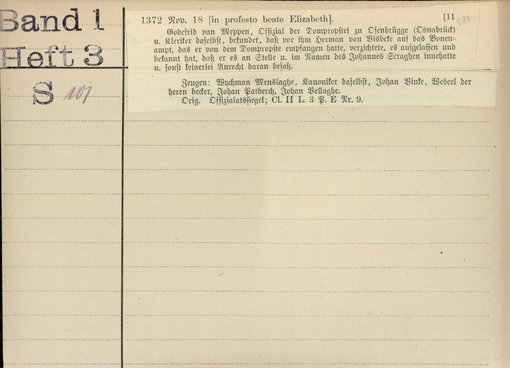 Band 1
Heft 3
S 107
1372 Nov. 18 [in profesto beate Elizabeth]. [11
Godefrid van Meppen, Offizial der Dompropstei zu Osenbrügge (Osnabrück)
u. Kleriker daselbst, bekundet, daß vor ihm Herman van Bisbeke auf das Bonen-
ampt, das er von dem Dompropste empfangen hatte, verzichtete, es aufgelassen und
bekannt hat, daß er es an Stelle u. im Namen des Johannes Scraghen innehatte
u. sonst keinerlei Anrecht daran besaß.
Zeugen: Wychman Menslaghe, Kanoniker daselbst, Johan Vinke, Wescel der
heren becker, Johan Palberch, Johan Vellaghe.
Orig. Offizialatssiegel; Cl. II L. 3 P. E Nr. 9.